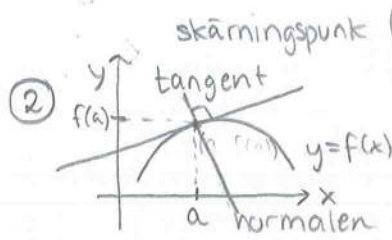 skärningspunk
②
y
tangent
f(a)
y=f(x)
x
a
normalen